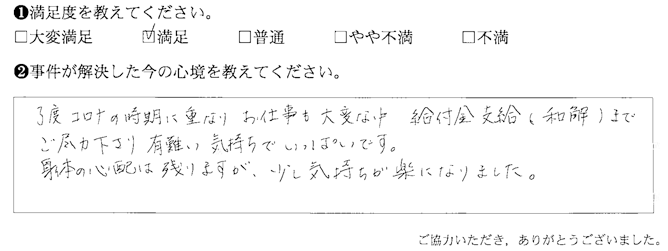 ❶満足度を教えてください。
□大変満足 ☑満足 □普通 □やや不満 □不満
❷事件が解決した今の心境を教えてください。
丁度コロナの時期に重なり お仕事も大変な中 給付金支給（和解）まで
ご尽力下さり 有難い気持ちでいっぱいです。
身体の心配は残りますが、少し気持ちが楽になりました。
ご協力いただき，ありがとうございました。